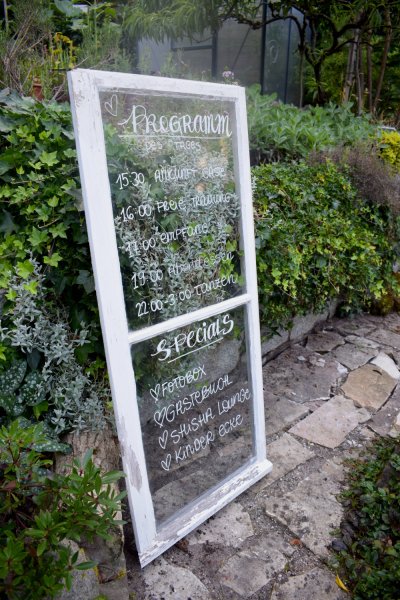 PROGRAMM
DES TAGES
15:30 ANKUNFT GÄSTE
16:00 FREIE TRAUUNG
17:00 EMPFANG
19:00 ABENDESSEN
22:00-3:00 TANZEN
SPECIALS
FOTOBOX
GÄSTEBUCH
SHISHA LOUNGE
KINDER ECKE